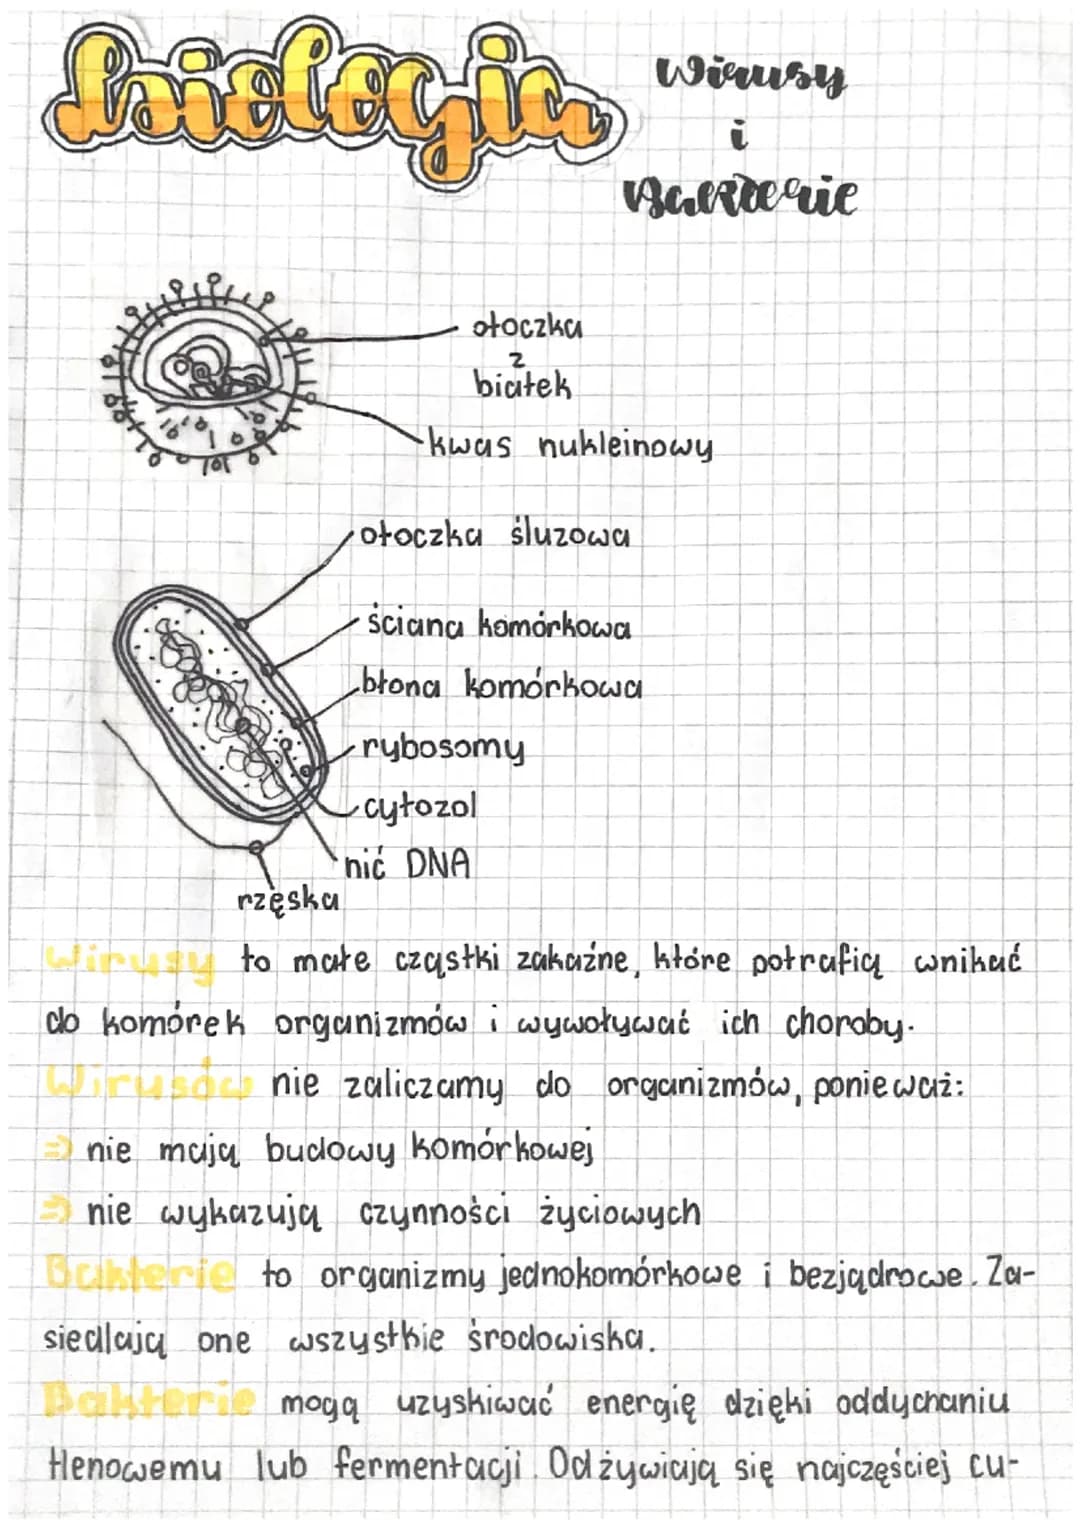 biologia
Wirusy
i
Bakterie
otoczka
z
białek
kwas nukleinowy
otoczka śluzowa
ściana komórkowa
błona komórkowa
rybosomy
cytozol
nić DNA
rzęska
Wirusy to małe cząstki zakaźne, które potrafią wnikać
do komórek organizmów i wywoływać ich choroby.
Wirusów nie zaliczamy do organizmów, ponieważ:
⇒ nie mają budowy komórkowej
⇒ nie wykazują czynności życiowych
Bakterie to organizmy jednokomórkowe i bezjądrowe. Za-
siedlają one wszystkie środowiska.
Bakterie mogą uzyskiwać energię dzięki oddychaniu
tlenowemu lub fermentacji. Odżywiają się najczęściej cu-